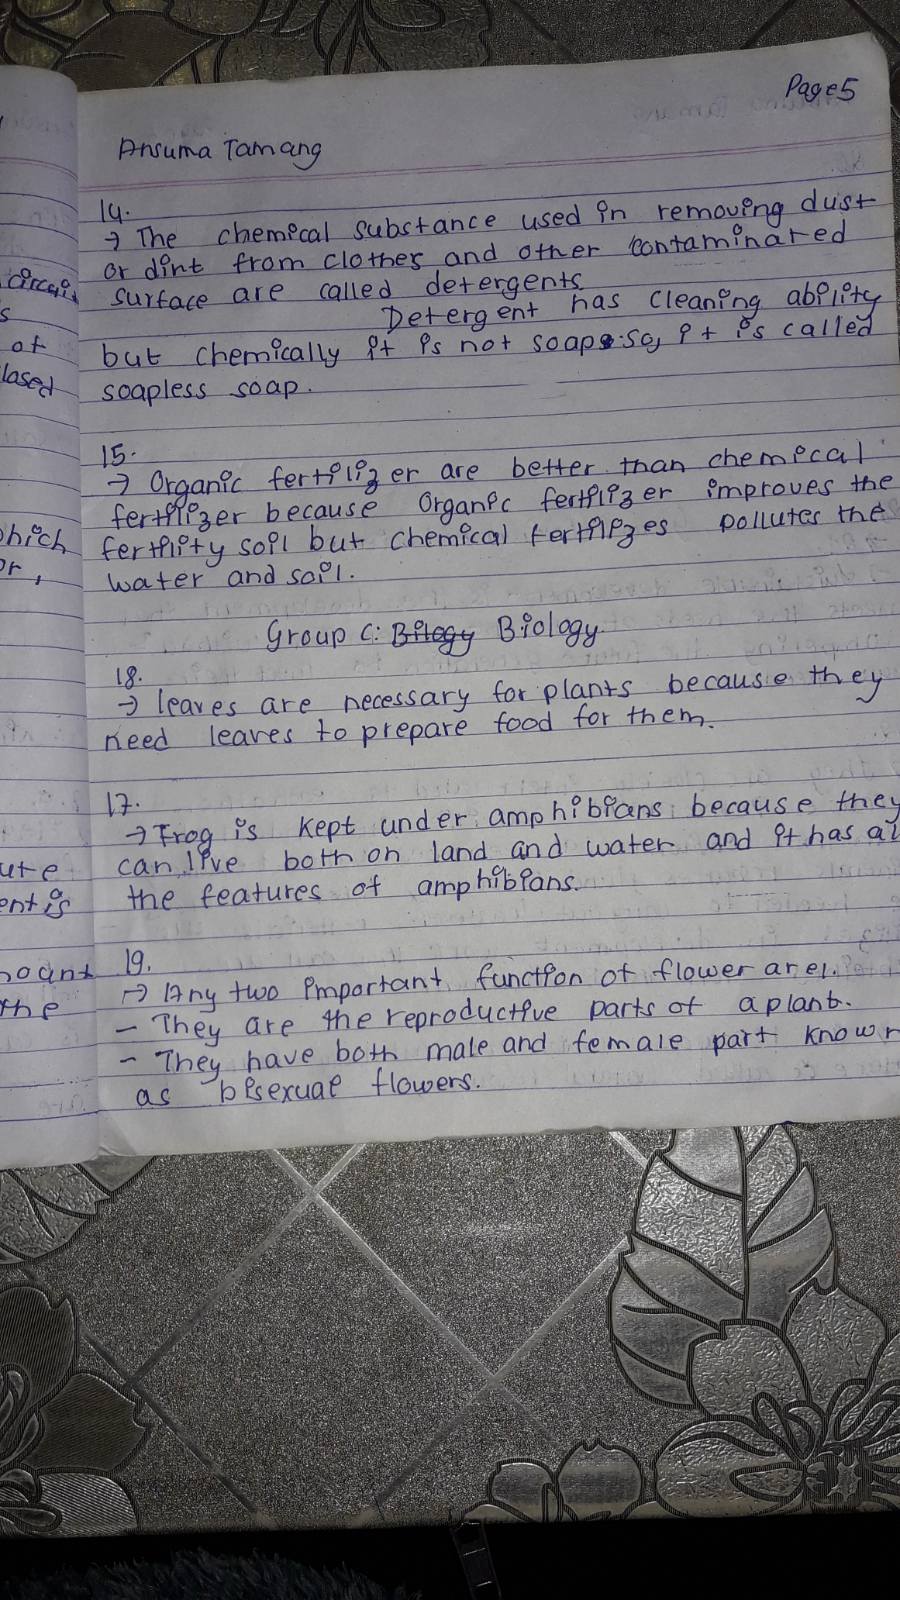 Page 5
Ansuma Tamang
14.
→ The chemical substance used in removing dust
or dirt from clothes and other contaminared
surface are called detergents
Detergent has cleaning ability
but chemically it is not soap. so, it is called
soapless soap.
15.
→ Organic fertilizer are better than chemical
fertilizer because organic fertilizer improves the
fertility soil but chemical fertilizes pollutes the
water and soil.
Group C: Bilogy Biology.
18.
→ leaves are necessary for plants because they
need leaves to prepare food for them.
17.
→ Frog is kept under amphibians because they
can live both on land and water and it has al
the features of amphibians.
19.
→ Any two important function of flower are:
- They are the reproductive parts of a plant.
- They have both male and female part known
as bisexual flowers.
circuit
s
of
lased
which
or,
ute
ent is
the